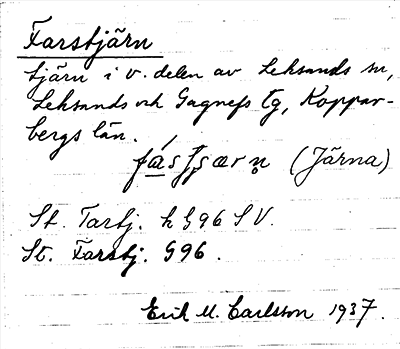 Farstjärn
tjärn i v. delen av Leksands sn,
Leksands och Gagnefs tg, Koppar-
bergs län.
(Järna)
St. Tartj. k G96 SV.
St. Farstj. G96.
Erik M. Carlsson 1937.